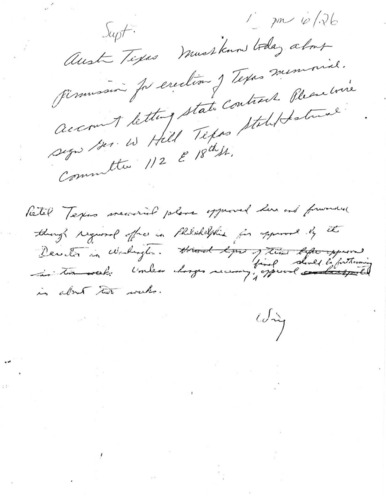 Supt.
1 pm 6/26
Austin Texas Must know today about
permission for erection of Texas memorial.
account letting state contract. Please wire
sign Geo. W Hill Texas State Historical
Committee 112 E 18th St.
Retel Texas memorial plans approved here and forwarded
though regional office in Philadelphia for approval by the
Director in Washington.
final should be forthcoming
Unless changes necessary, approval
in about two weeks.